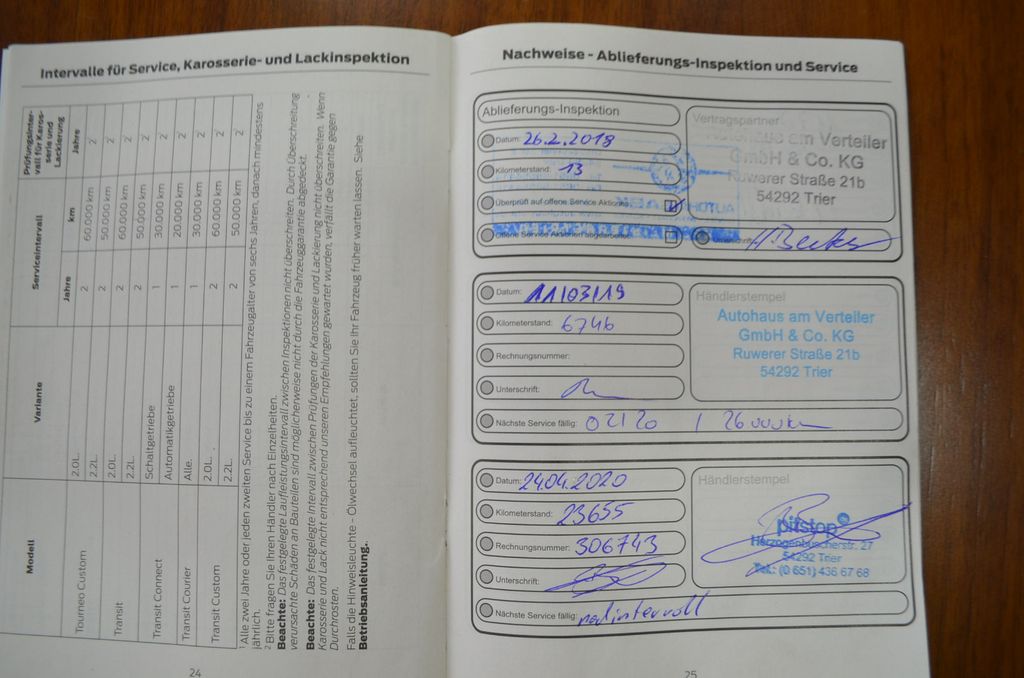 Intervalle für Service, Karosserie- und Lackinspektion
Modell
Variante
Serviceintervall
Prüfungsinter-
vall für Karos-
serie und
Lackierung
Jahre
km
Jahre
Tourneo Custom
2.0L.
2
60.000 km
2
2.2L.
2
50.000 km
2
Transit
2.0L.
2
60.000 km
2
2.2L.
2
50.000 km
2
Transit Connect
Schaltgetriebe
1
30.000 km
2
Automatikgetriebe
1
20.000 km
2
Transit Courier
Alle.
1
30.000 km
2
Transit Custom
2.0L.
2
60.000 km
2
2.2L.
2
50.000 km
2
¹ Alle zwei Jahre oder jeden zweiten Service bis zu einem Fahrzeugalter von sechs Jahren, danach mindestens
jährlich.
² Bitte fragen Sie Ihren Händler nach Einzelheiten.
Beachte: Das festgelegte Laufleistungsintervall zwischen Inspektionen nicht überschreiten. Durch Überschreitung
verursachte Schäden an Bauteilen sind möglicherweise nicht durch die Fahrzeuggarantie abgedeckt.
Beachte: Das festgelegte Intervall zwischen Prüfungen der Karosserie und Lackierung nicht überschreiten. Wenn
Karosserie und Lack nicht entsprechend unseren Empfehlungen gewartet wurden, verfällt die Garantie gegen
Durchrosten.
Falls die Hinweisleuchte - Ölwechsel aufleuchtet, sollten Sie Ihr Fahrzeug früher warten lassen. Siehe
Betriebsanleitung.
24
Nachweise - Ablieferungs-Inspektion und Service
Ablieferungs-Inspektion
Datum: 26.2.2018
Kilometerstand: 13
Überprüft auf offene Service Aktionen
Offene Service Aktionen abgearbeitet
Vertragspartner
Autohaus am Verteiler
GmbH & Co. KG
Ruwerer Straße 21b
54292 Trier
Unterschrift: H. Becker
Datum: 11/03/19
Kilometerstand: 6746
Rechnungsnummer:
Unterschrift:
Nächste Service fällig: 02/20 / 26
Händlerstempel
Autohaus am Verteiler
GmbH & Co. KG
Ruwerer Straße 21b
54292 Trier
Datum: 24.04.2020
Kilometerstand: 23655
Rechnungsnummer: 306743
Unterschrift:
Nächste Service fällig: nach intervall
Händlerstempel
pitstop
Herzogenbuscherstr. 27
54292 Trier
Tel.: (0 651) 436 67 68
25